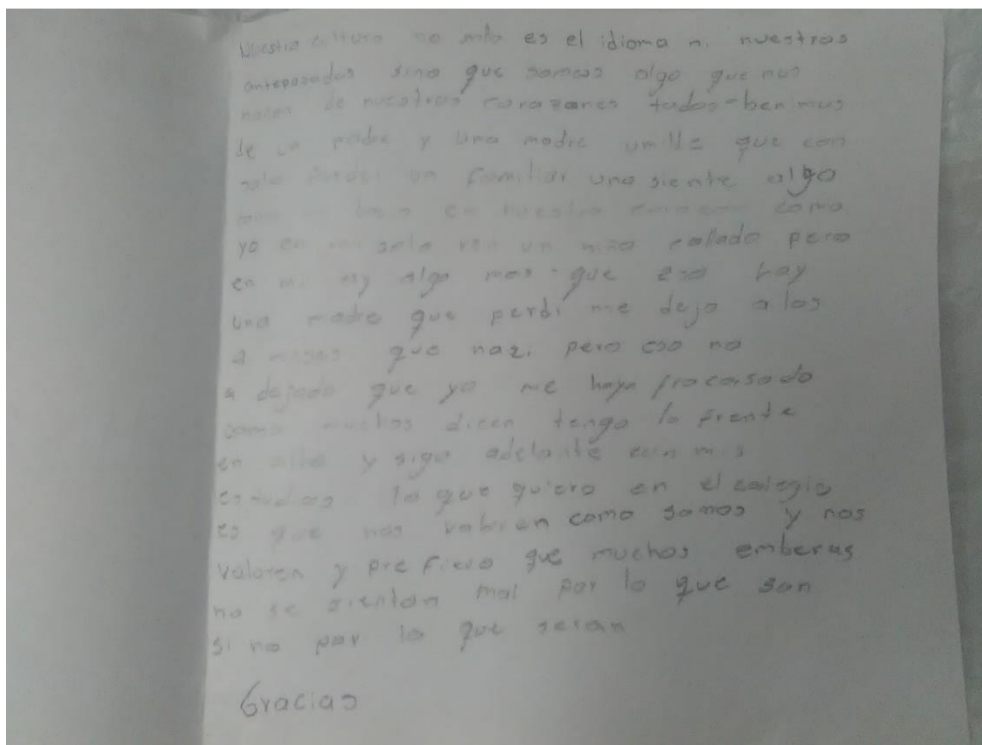 Nuestra cultura no solo es el idioma ni nuestros
antepasados sino que somos algo que nos
nacen de nuestros corazones todos benimos
de un padre y una madre umilde que con
solo perder un familiar uno siente algo
en nuestro corazon como
yo en mi solo ven un niño callado pero
en mi ay algo mas que eso hay
una madre que perdi me dejo a los
2 meses que nazi pero eso no
a dejado que yo me haya fracasado
como muchos dicen tengo la frente
en alto y sigo adelante con mis
estudios lo que quiero en el colegio
es que nos valoren como somos y nos
valoren y prefiero que muchos emberas
no se sientan mal por lo que son
si no por lo que seran
Gracias